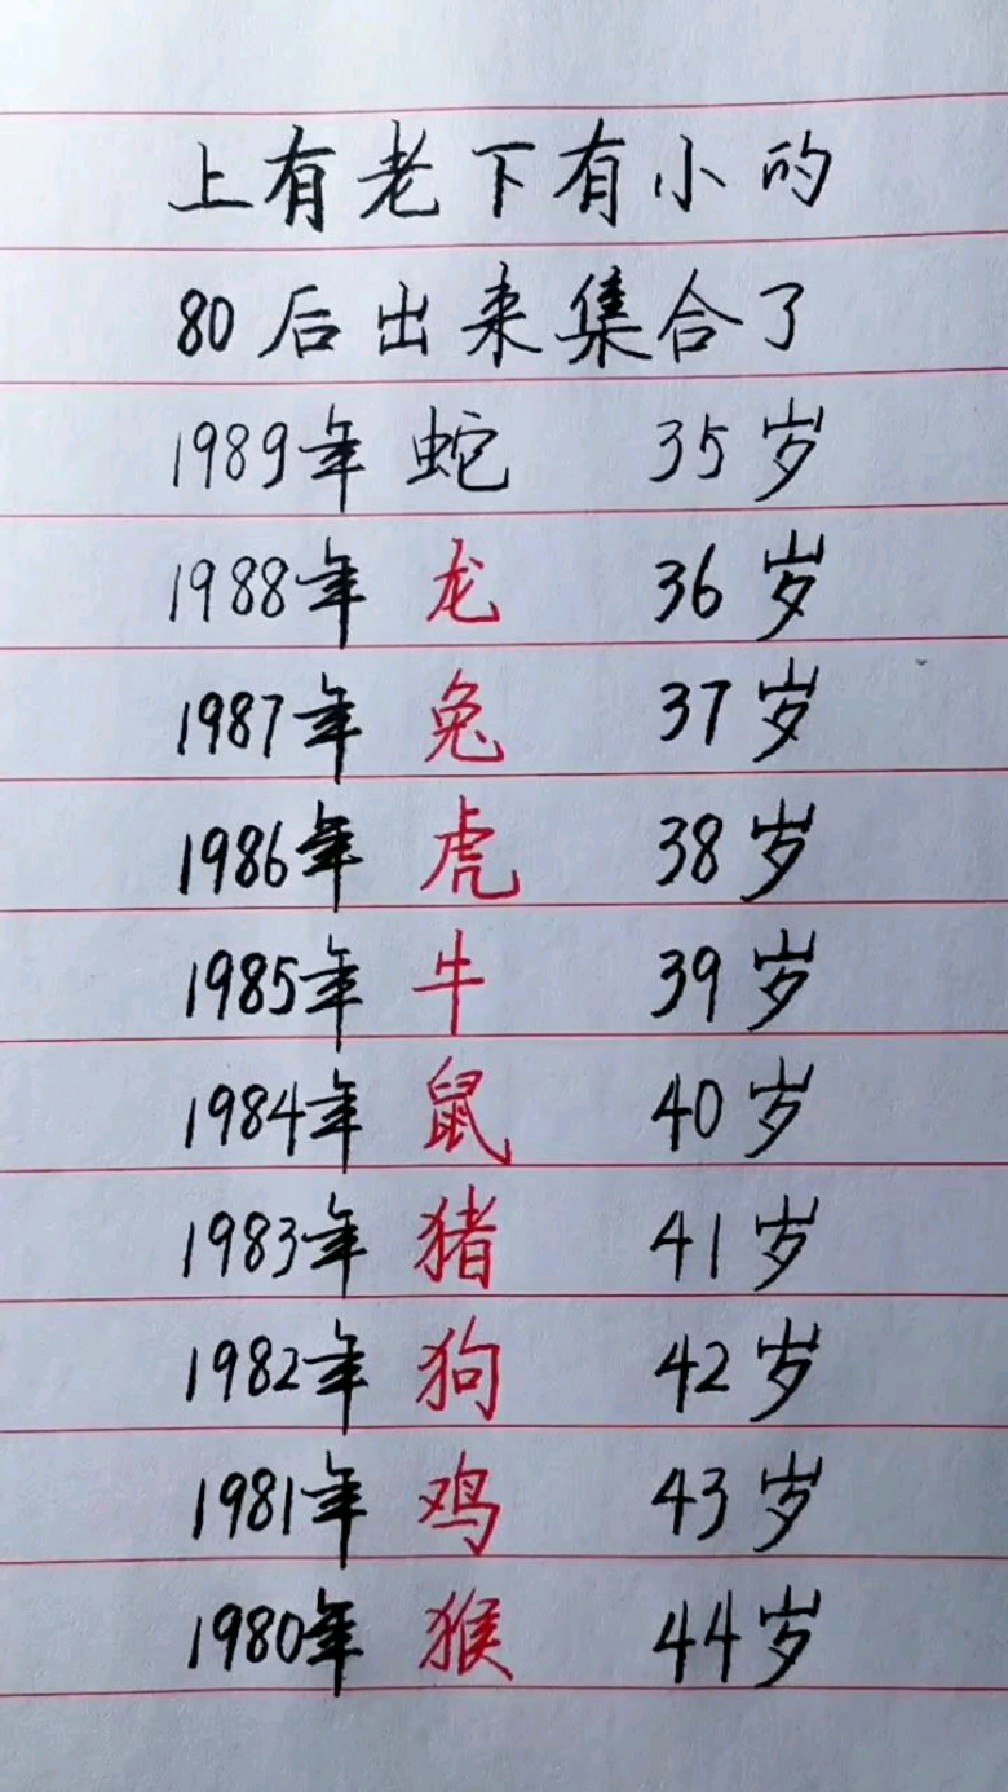 上有老下有小的
80后出来集合了
1989年 蛇 35岁
1988年 龙 36岁
1987年 兔 37岁
1986年 虎 38岁
1985年 牛 39岁
1984年 鼠 40岁
1983年 猪 41岁
1982年 狗 42岁
1981年 鸡 43岁
1980年 猴 44岁